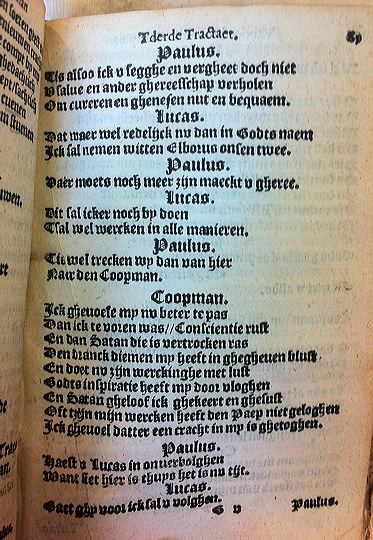 Tderde Tractaet. 89
Paulus.
Tis alsoo ick v segghe en vergheet doch niet
V salue en ander ghereesschap verholen
Om cureren en ghenesen nut en bequaem.
Lucas.
Dat waer wel redelijck nv dan in Godts naem
Jck sal nemen witten Elborus onsen twee.
Paulus.
Daer moets noch meer zijn maeckt v gheree.
Lucas.
Dit sal icker noch by doen
Tsal wel wercken in alle manieren.
Paulus.
Tis wel trecken wy dan van hier
Naer den Coopman.
Coopman.
Jck gheuoele my nv beter te pas
Dan ick te voren was// Conscientie rust
En dan Satan die is vertrocken ras
Den dranck diemen my heeft in ghegheuen blust
En doet nv zijn werckinghe met lust
Godts inspiratie heeft my door vloghen
En Satan gheloof ick ghekeert en ghesust
Oft tzijn mijn wercken heeft den Paep niet gheloghen
Jck gheuoel datter een cracht in my is ghetoghen.
Paulus.
Haest v Lucas in onuerbolghen
Want het hier is thups het is nv tijt.
Lucas.
Gaet ghy voor ick sal v volghen.
G v Paulus.